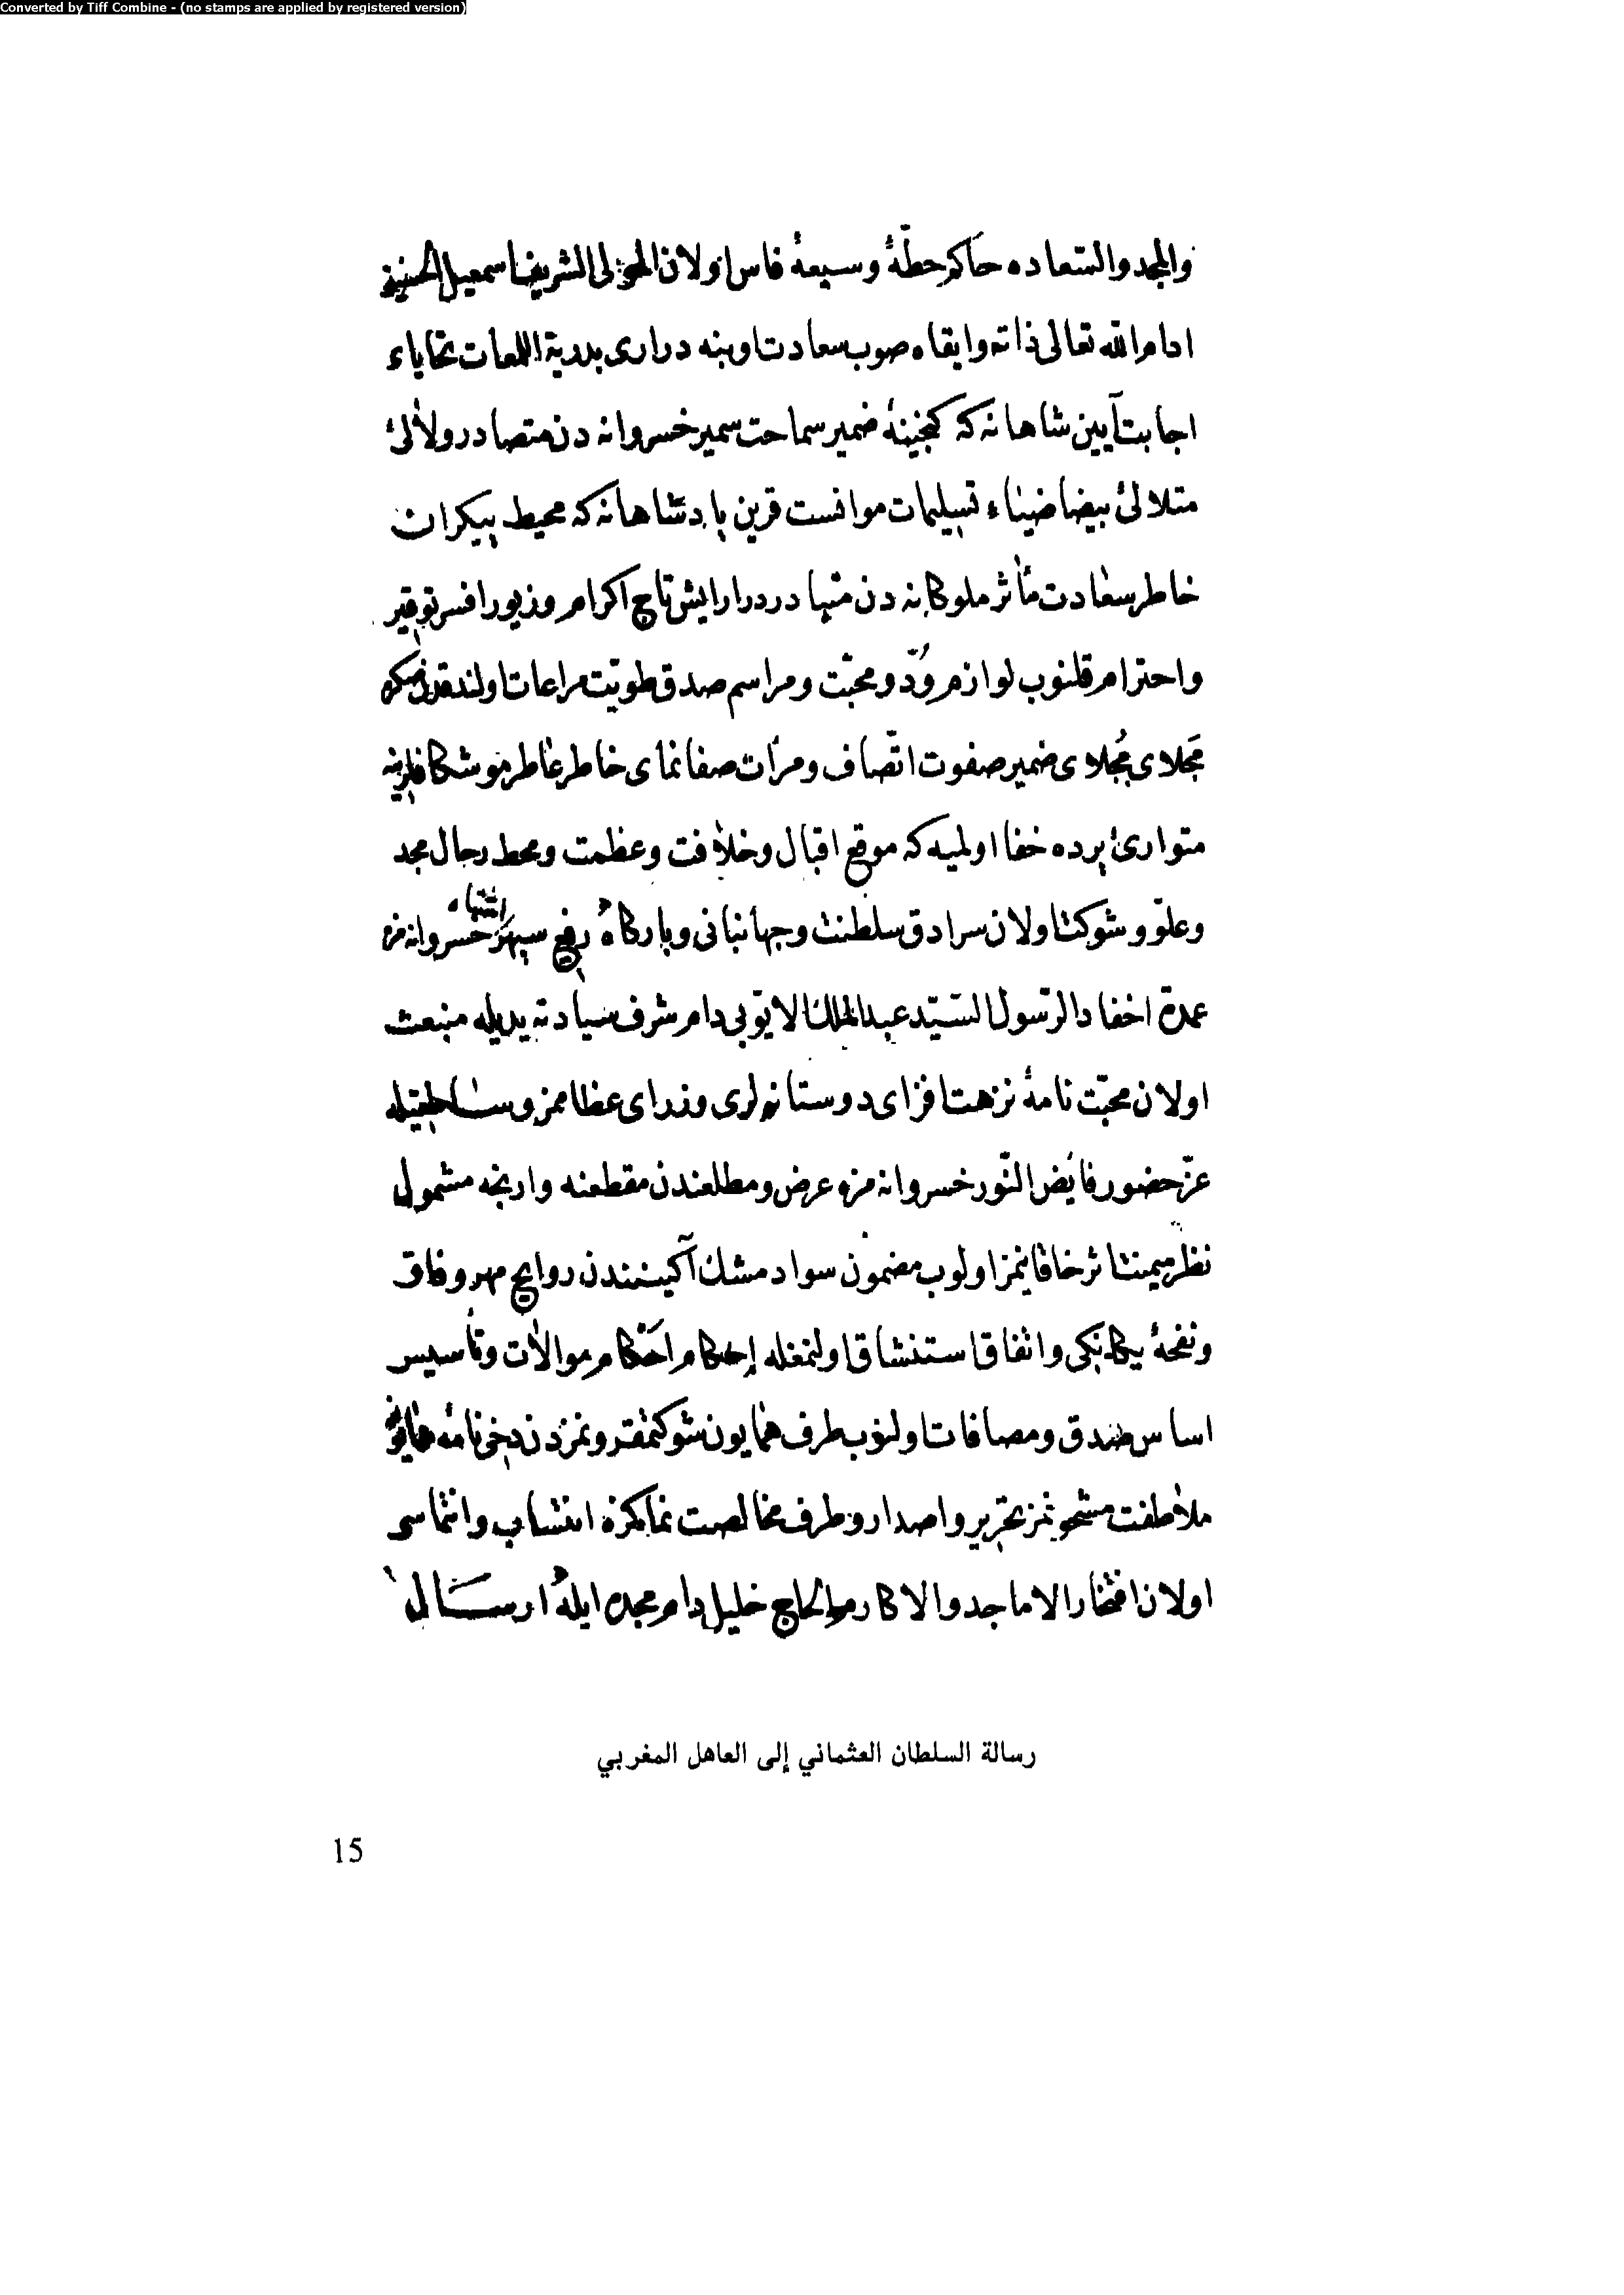 Converted by Tiff Combine - (no stamps are applied by registered version)
والمجد والسّعاده حاكم حطّهٔ وسیعهٔ فاس اولان المولی الشریف اسمعیل الحسنیة
ادام الله تعالی ذاته وابقاه صوب سعادت اوبنه دراری بدریة اللمعات تحایاء
اجابت آیین شاهانه که کنجینهٔ ضمیر سماحت سمیر خسروانه دن متصادر ولآلئ
متلالئ بیضا ضیاء تسلیمات موانست قرین پادشاهانه که محیط بیکران
خاطر سعادت مأثر ملوکانه دن متبادر در ارایش تاج اکرام وزیور افسر توقیر
واحترام قلنوب لوازم وُدّ ومحبّت ومراسم صدق طویّت مراعات اولندقدن صکره
مَجلای مُجلای ضمیر صفوت اتّصاف ومرآت صفا نمای خاطر عاطر موشکافلرینه
متوارئ پرده خفا اولمیه که موقع اقبال وخلافت وعظمت ومحط رحال مجد
وعلوّ وشوکت اولان سرادق سلطنت وجهانبانی وبارکاه رفیع سپهر اشتباه خسروانه مزه
عمدة احفاد الرّسول السّیّد عبد الملک الایّوبی دام شرف سیادته یدیله منبعث
اولان محبّت نامهٔ نزهت افزای دوستانه لری وزرای عظاممز وساطتیله
عزّ حضور فایض النّور خسروانه مزه عرض ومطلعندن مقطعنه وارنجه مشمول
نظر میمنت اثر خاقانیمز اولوب مضمون سواد مشک آکینندن روایح مهر وفاق
ونفحهٔ یکانکی واتفاق استنشاق اولنمغله إحکام احکام موالات وتأسیس
اساس صدق ومصافات اولنوب طرف همایون شوکتمقرونمزدن دخی نامهٔ همایون
ملاطفت مشحونمز تحریر واصدار وطرف مخالصت نماکزه انتساب وانتماسی
اولان افتخار الاماجد والاکارم الحاج خلیل دام مجده ایله ارسال
رسالة السلطان العثماني إلى العاهل المغربي
15